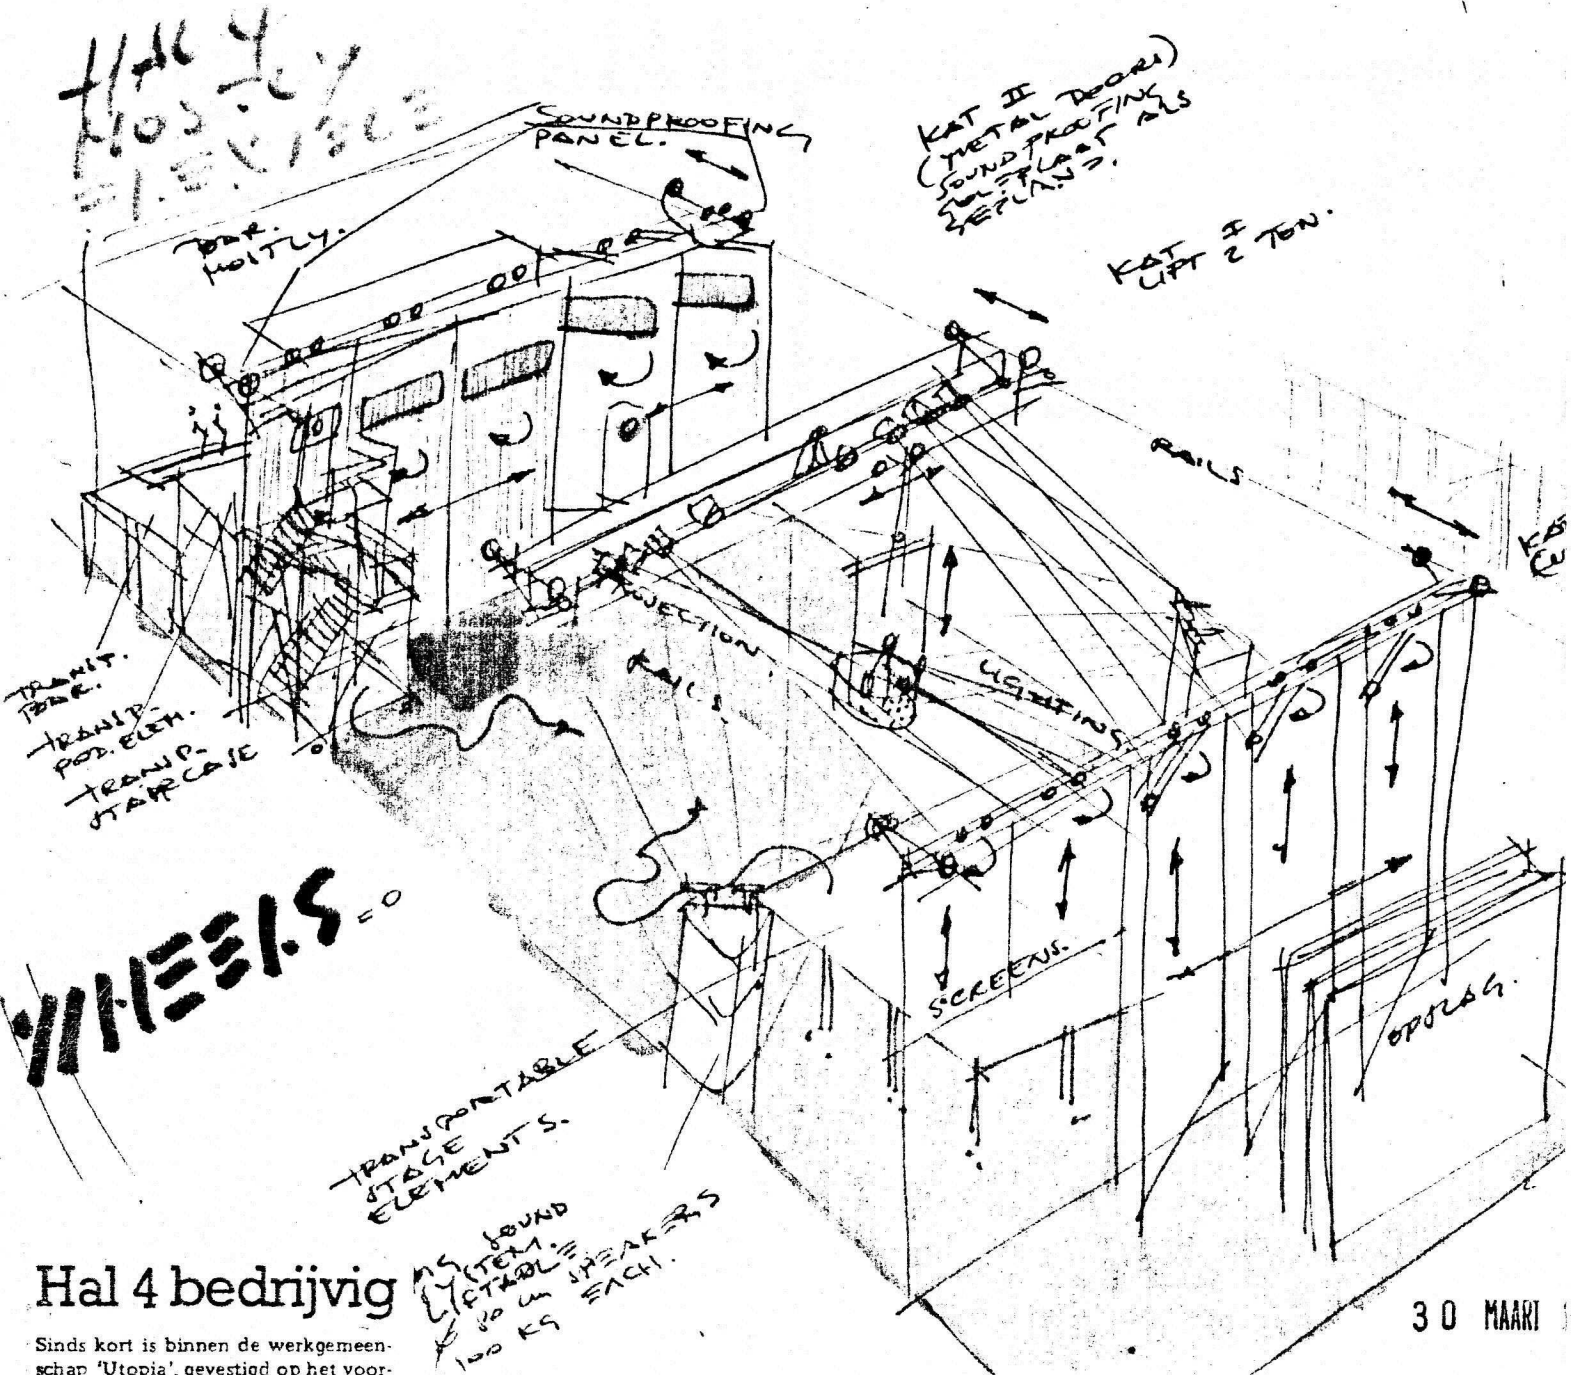 HAL 4
MOSTLY
FLEXIBLE
SOUNDPROOFING
PANEL.
BAR.
MOSTLY.
KAT II
(METAL DOORS)
SOUNDPROOFING
ALS
KAT I
LIFT 2 TON.
RAILS
PROJECTION
RAILS.
LIGHTING.
TRANSP.
BAR.
TRANSP.
POD. ELEM.
TRANSP.
STAIRCASE
WHEELS.
SCREENS.
OPSLAG.
TRANSPORTABLE
STAGE
ELEMENTS.
SOUND
SYSTEM.
LIFTABLE
SPEAKERS
100 KG EACH.
Hal 4 bedrijvig
Sinds kort is binnen de werkgemeen-
schap 'Utopia', gevestigd op het voor-
30 MAART